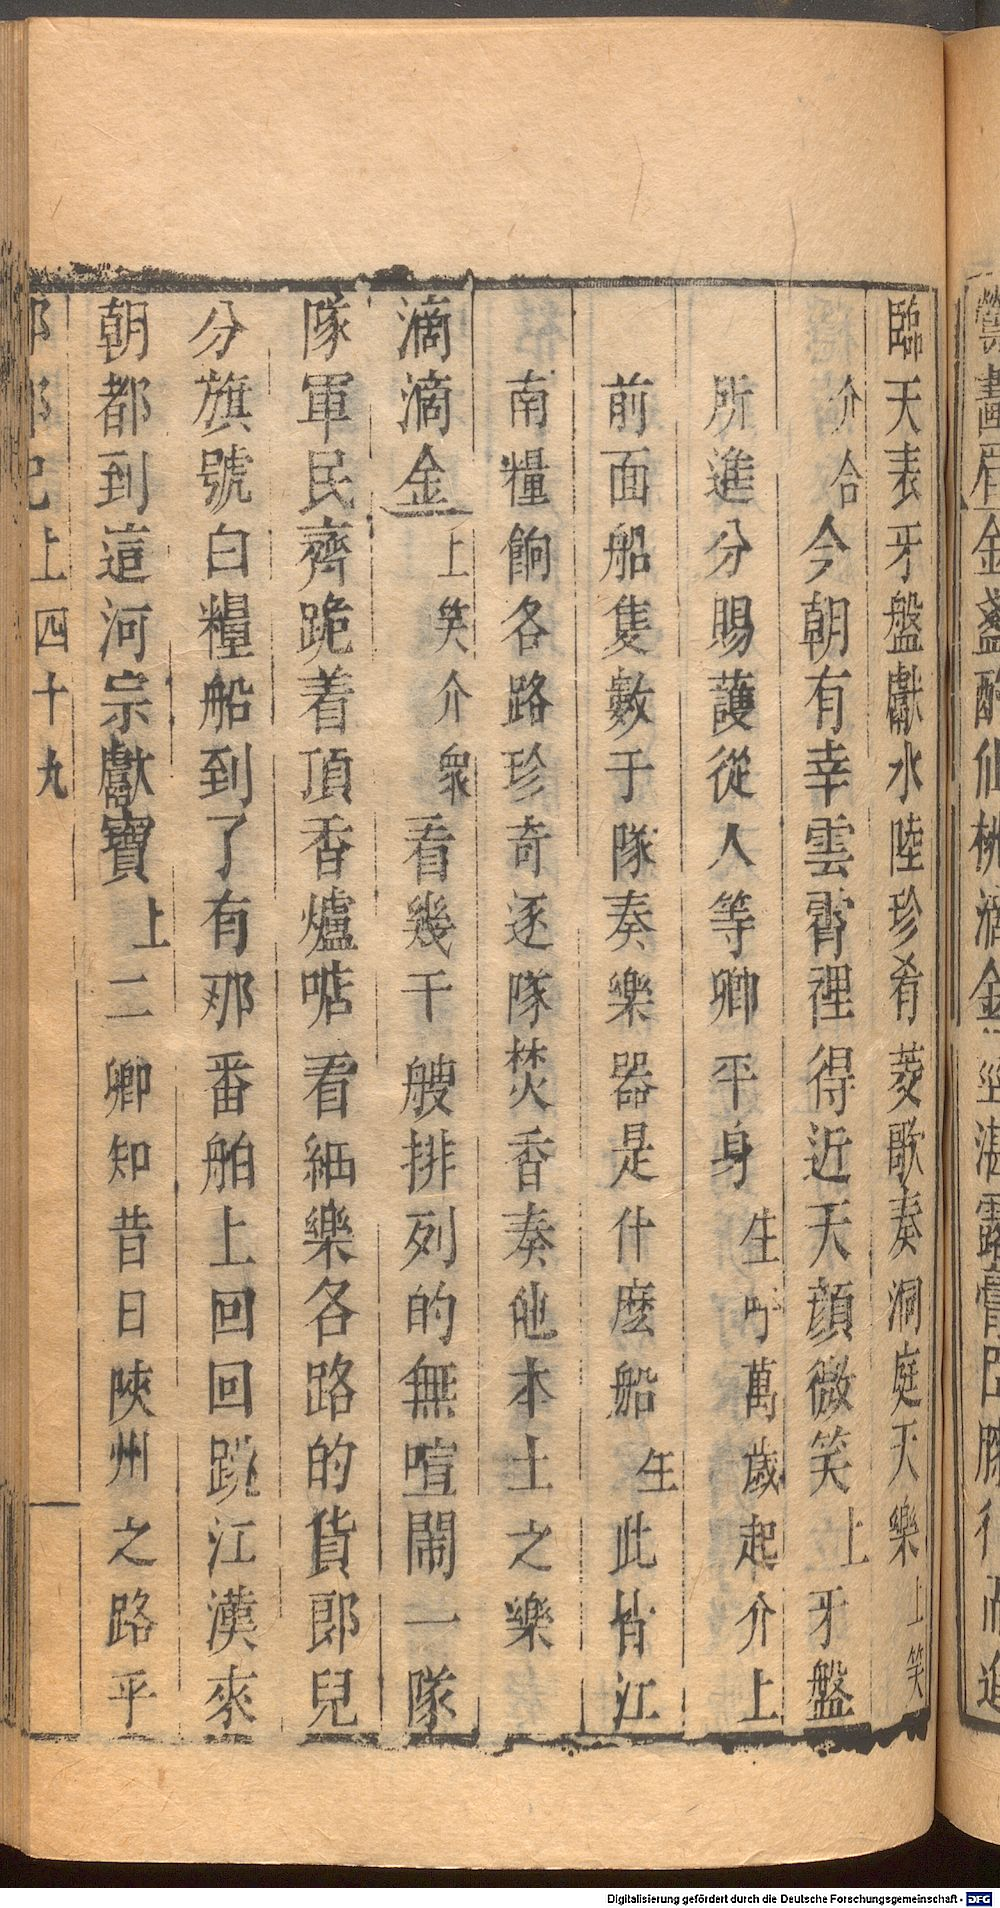 金盞酌仙桃滴金莖湛露膏
臨天表牙盤獻水陸珍肴菱歌奏洞庭天樂上笑
介合今朝有幸雲霄裡得近天顔微笑上牙盤
所進分賜護從人等卿平身生呼萬歲起介上
前面船隻數于隊奏樂器是什麽船生此皆江
南糧餉各路珍奇逐隊焚香奏他本土之樂
滴滴金上笑介衆看幾千艘排列的無喧鬧一隊
隊軍民齊跪着頂香爐看細樂各路的貨郎兒
分旗號白糧船到了有那番舶上回回跳江漢來
朝都到這河宗獻寶上二卿知昔日陝州之路乎
記上四十九
Digitalisierung gefördert durch die Deutsche Forschungsgemeinschaft - DFG